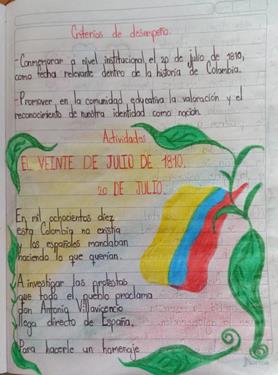 Criterios de desempeño.
-Conmemorar a nivel institucional, el 20 de julio de 1810,
como fecha relevante dentro de la historia de Colombia.
-Promover en la comunidad educativa la valoración y el
reconocimiento de nuestra identidad como nación.
Actividades
EL VEINTE DE JULIO DE 1810.
20 DE JULIO.
En mil ochocientos diez
esta Colombia no existía
y los españoles mandaban
haciendo lo que querían.
A investigar las protestas
que todo el pueblo proclama
don Antonio Villavicencio
llega directo de España.
Para hacerle un homenaje